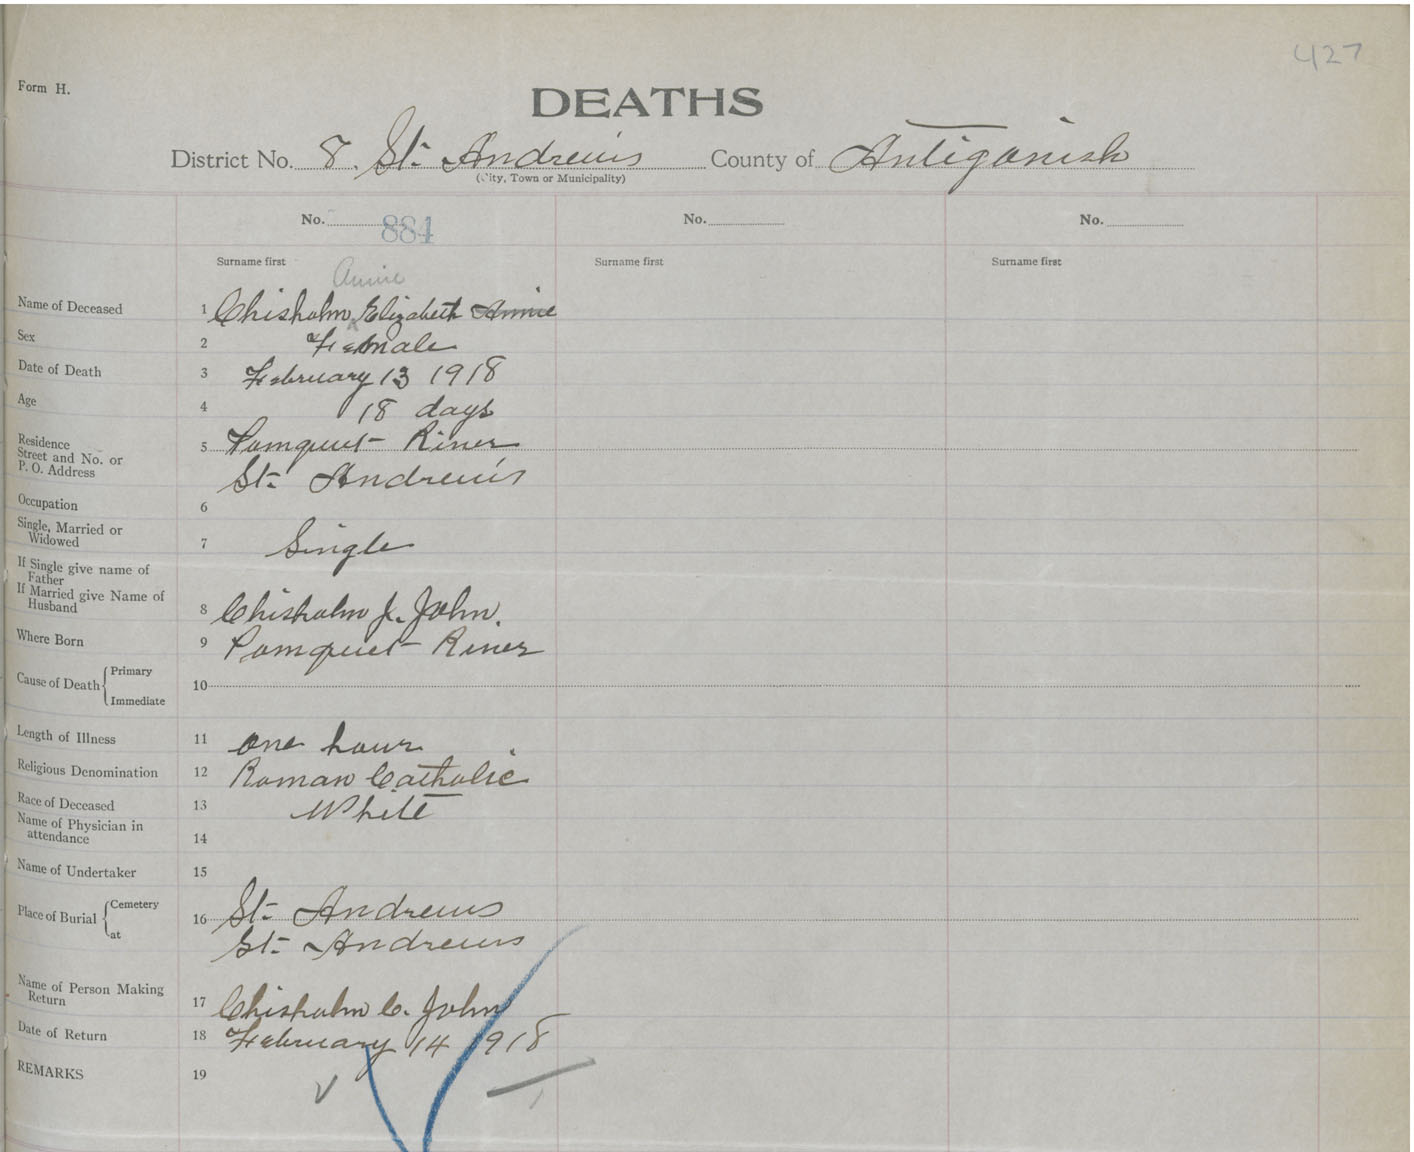 427
Form H.
DEATHS
District No. 8. St. Andrews County of Antigonish
(City, Town or Municipality)
No. 884 No. No.
Surname first Surname first Surname first
Annie
Name of Deceased 1 Chisholm, Elizabeth Annie
Sex 2 Female
Date of Death 3 February 13 1918
Age 4 18 days
Residence
Street and No. or
P. O. Address
5 Pomquet River
St. Andrew's
Occupation 6
Single, Married or
Widowed
7 Single
If Single give name of
Father
If Married give Name of
Husband
8 Chisholm J. John.
Where Born 9 Pomquet River
Cause of Death { Primary
Immediate
10
Length of Illness 11 one hour
Religious Denomination 12 Roman Catholic
Race of Deceased 13 White
Name of Physician in
attendance
14
Name of Undertaker 15
Place of Burial { Cemetery
at
16 St. Andrews
St. Andrews
Name of Person Making
Return
17 Chisholm C. John
Date of Return 18 February 14 1918
REMARKS 19